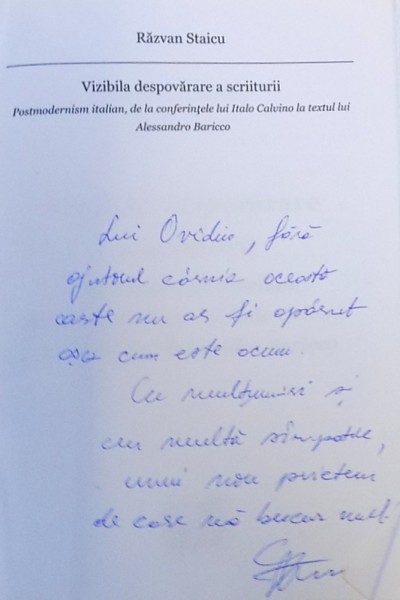 Răzvan Staicu
Vizibila despovărare a scriiturii
Postmodernism italian, de la conferințele lui Italo Calvino la textul lui
Alessandro Baricco
Lui Ovidiu, fără
ajutorul căruia această
carte nu ar fi apărut
așa cum este acum.
Cu mulțumiri și
cu multă simpatie,
unui nou prieten
de care mă bucur mult!